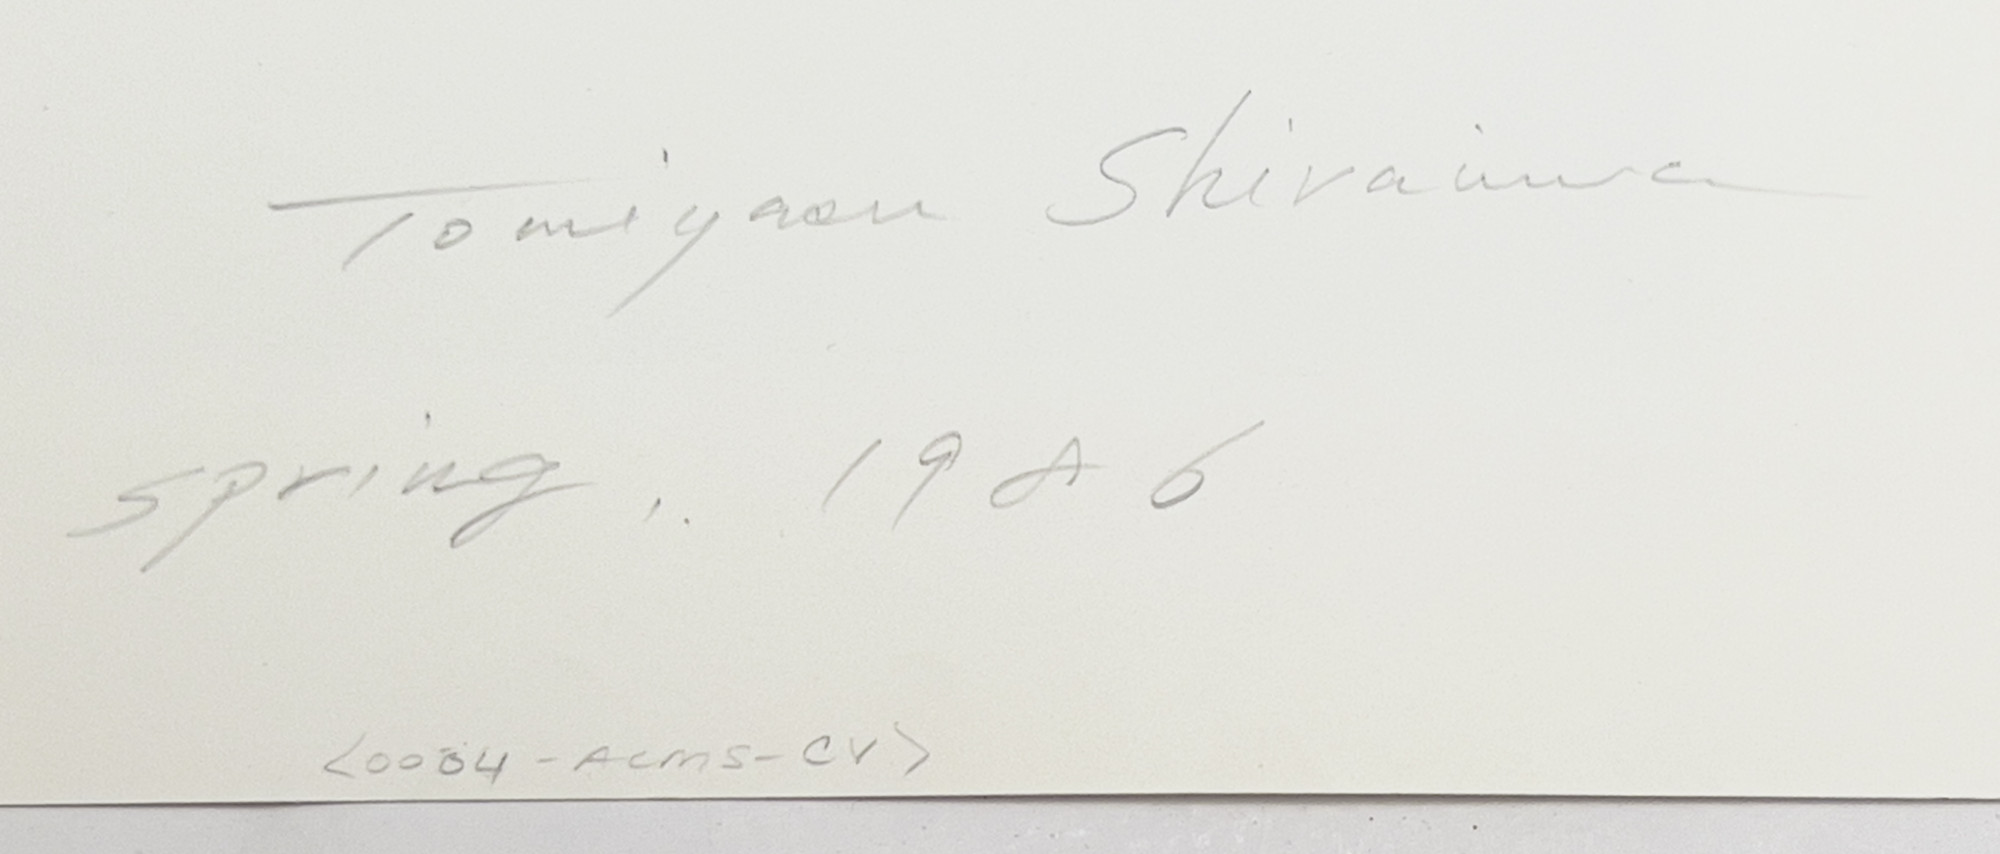 Tomiyasu Shiraiwa
spring. 1986
<0034-ACMS-CV>